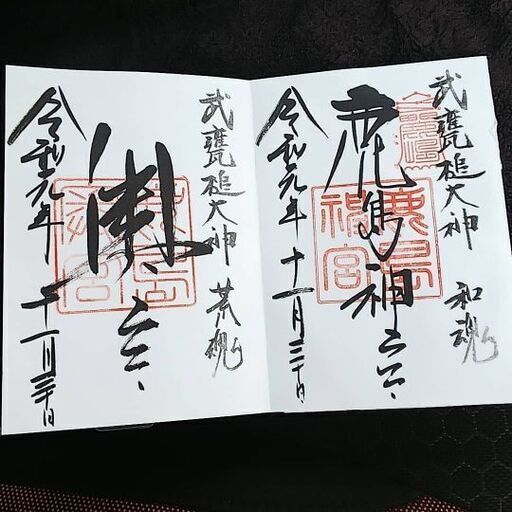 武甕槌大神 和魂
鹿島神宮
鹿島神宮
令和元年十一月三十日
武甕槌大神 荒魂
令和元年十一月三十日